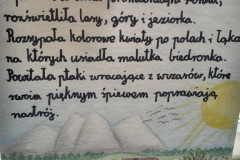 rozświetliła lasy, góry i jeziorka.
Rozsypała kolorowe kwiaty po polach i łąka
na których usiadła malutka biedronka.
Powitała ptaki wracające z wyrazów, które
swoim pięknym śpiewem poprawiają
nastrój.